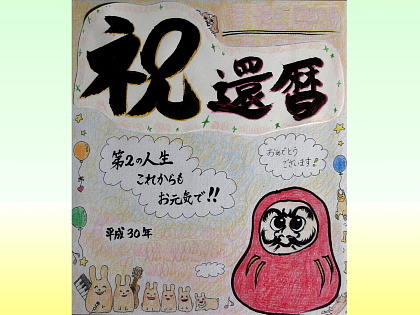 祝還暦
第2の人生
これからも
お元気で!!
おめでとう
ございます!
平成30年